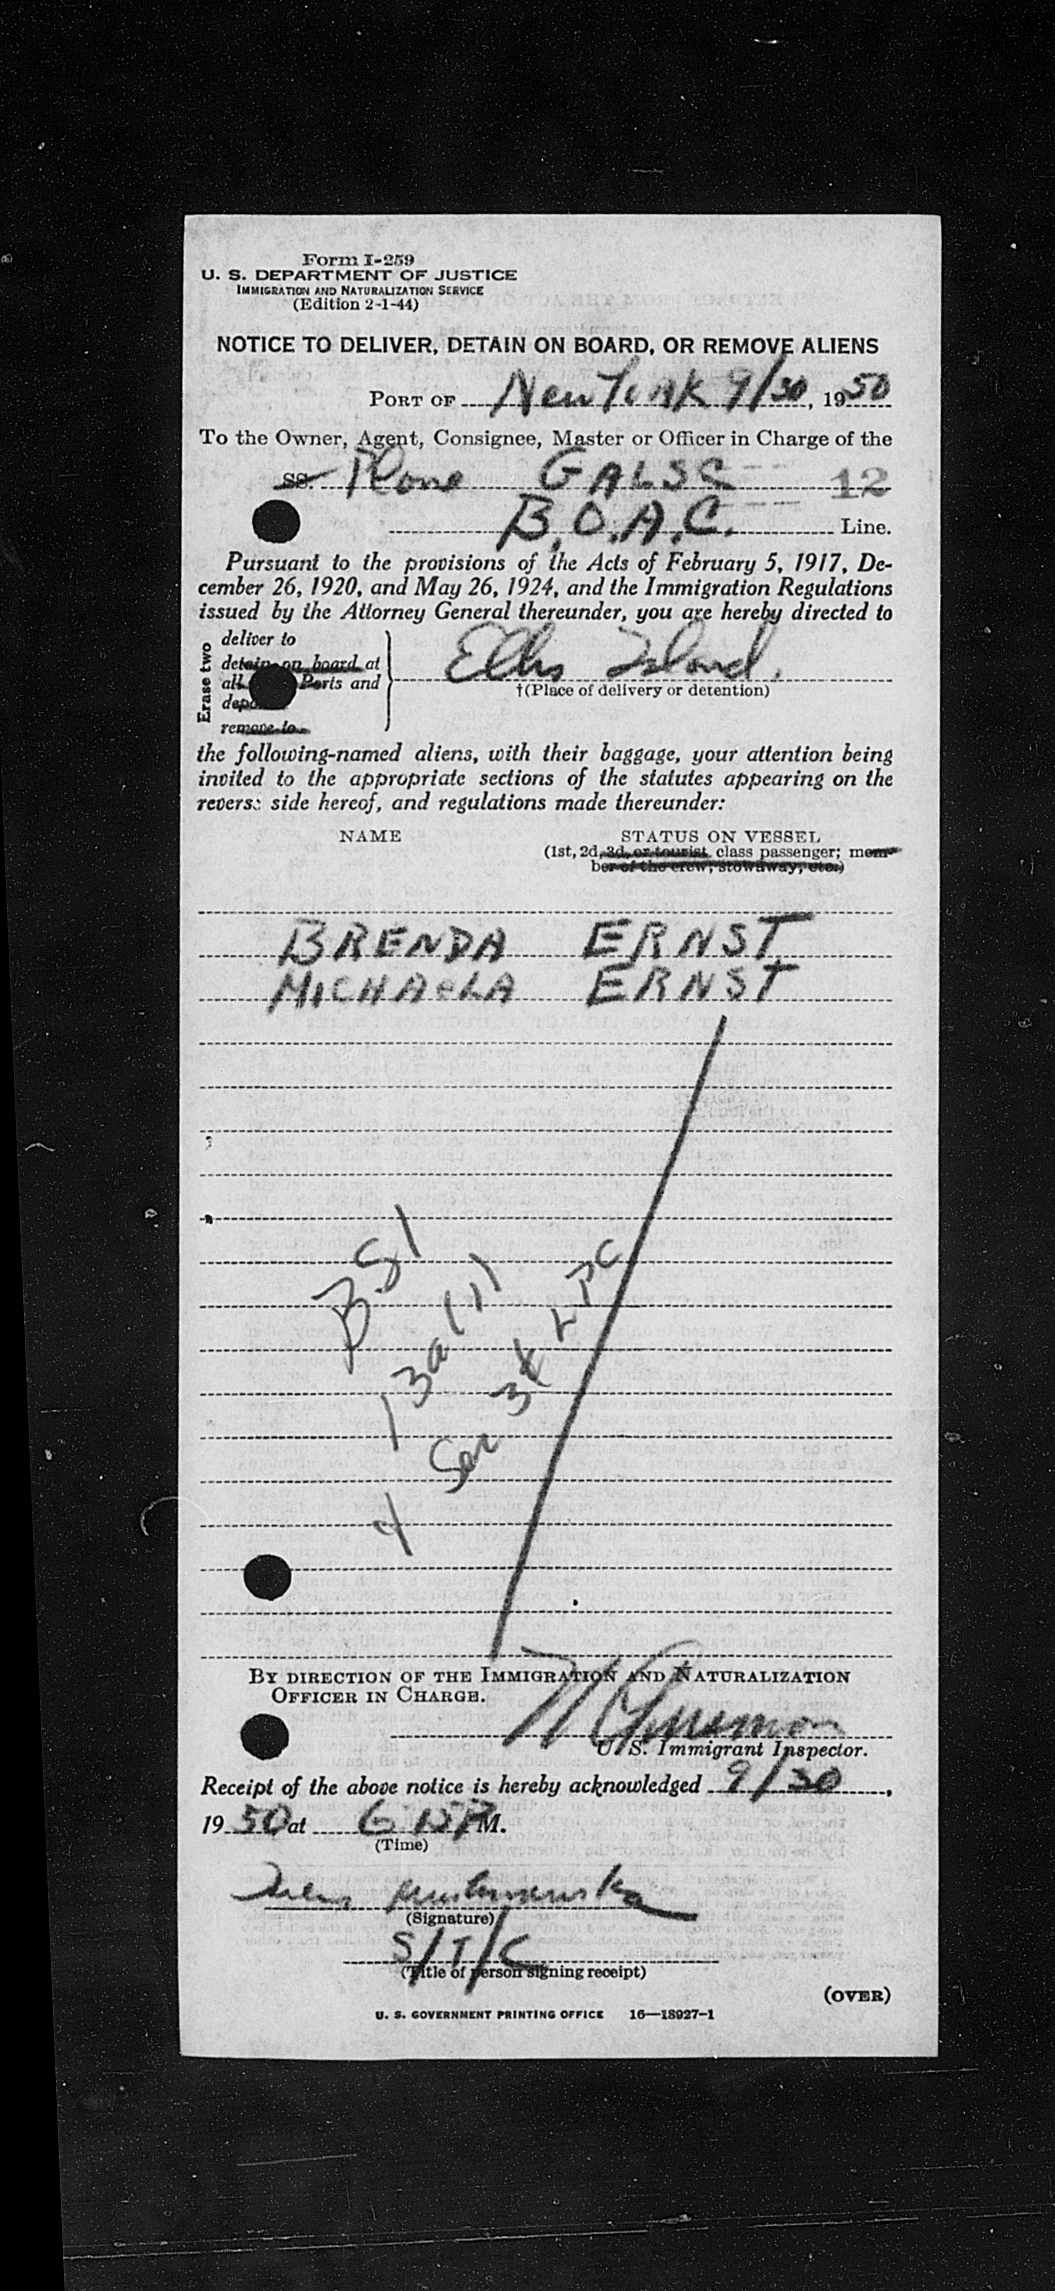 Form I-259
U. S. DEPARTMENT OF JUSTICE
IMMIGRATION AND NATURALIZATION SERVICE
(Edition 2-1-44)
NOTICE TO DELIVER, DETAIN ON BOARD, OR REMOVE ALIENS
PORT OF New York 9/30, 1950
To the Owner, Agent, Consignee, Master or Officer in Charge of the
SS. Plane GALSC 12
B.O.A.C. Line.
Pursuant to the provisions of the Acts of February 5, 1917, De-
cember 26, 1920, and May 26, 1924, and the Immigration Regulations
issued by the Attorney General thereunder, you are hereby directed to
Erase two
deliver to
detain on board at
all Ports and
remove to
Ellis Island.
†(Place of delivery or detention)
the following-named aliens, with their baggage, your attention being
invited to the appropriate sections of the statutes appearing on the
reverse side hereof, and regulations made thereunder:
NAME STATUS ON VESSEL
(1st, 2d, 3d, or tourist class passenger; mem-
ber of the crew; stowaway, etc.)
BRENDA ERNST
MICHAeLA ERNST
BSI
13a(1)
& Sec 3 LPC
BY DIRECTION OF THE IMMIGRATION AND NATURALIZATION
OFFICER IN CHARGE.
U. S. Immigrant Inspector.
Receipt of the above notice is hereby acknowledged 9/30,
1950 at 6 15 P M.
(Time)
(Signature)
S/T/C
(Title of person signing receipt)
(OVER)
U. S. GOVERNMENT PRINTING OFFICE 16—18927-1